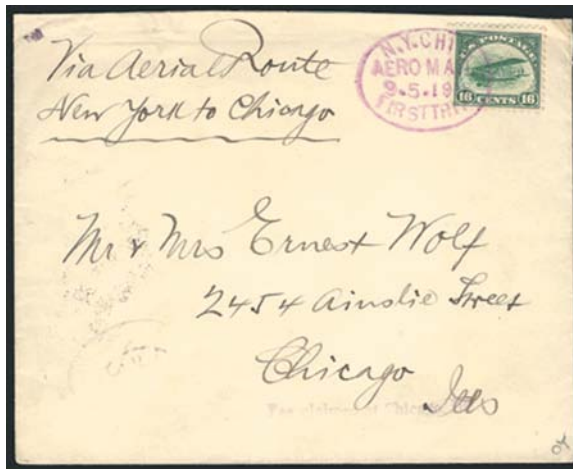 Via Aerial Route
New York to Chicago
N.Y. CHI
AERO MA
9.5.19
FIRST TRI
U.S. POSTAGE
16 CENTS 16
Mr & Mrs Ernest Wolf
2454 Ainslie Street
Chicago
Ills
Chicago